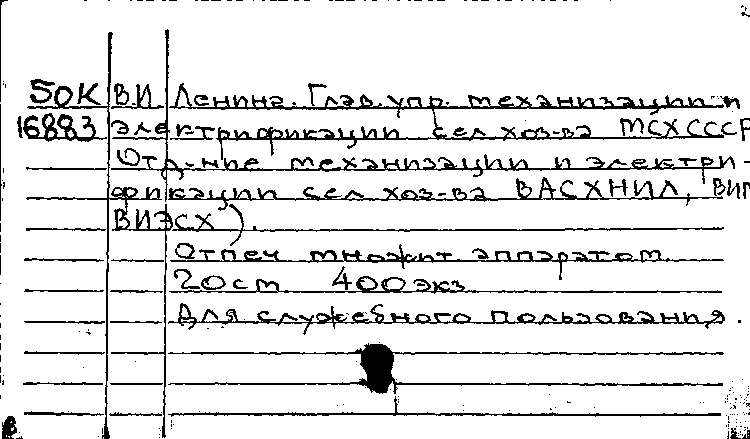 2
50К В.И. Ленина. Глав. упр. механизации и
16883 электрификации сел. хоз-ва МСХ СССР
Отд-ние механизации и электри-
фикации сел. хоз-ва ВАСХНИЛ,
ВИЭСХ).
Отпеч множит. аппаратом
20 ст. 400 экз.
Для служебного пользования.
в